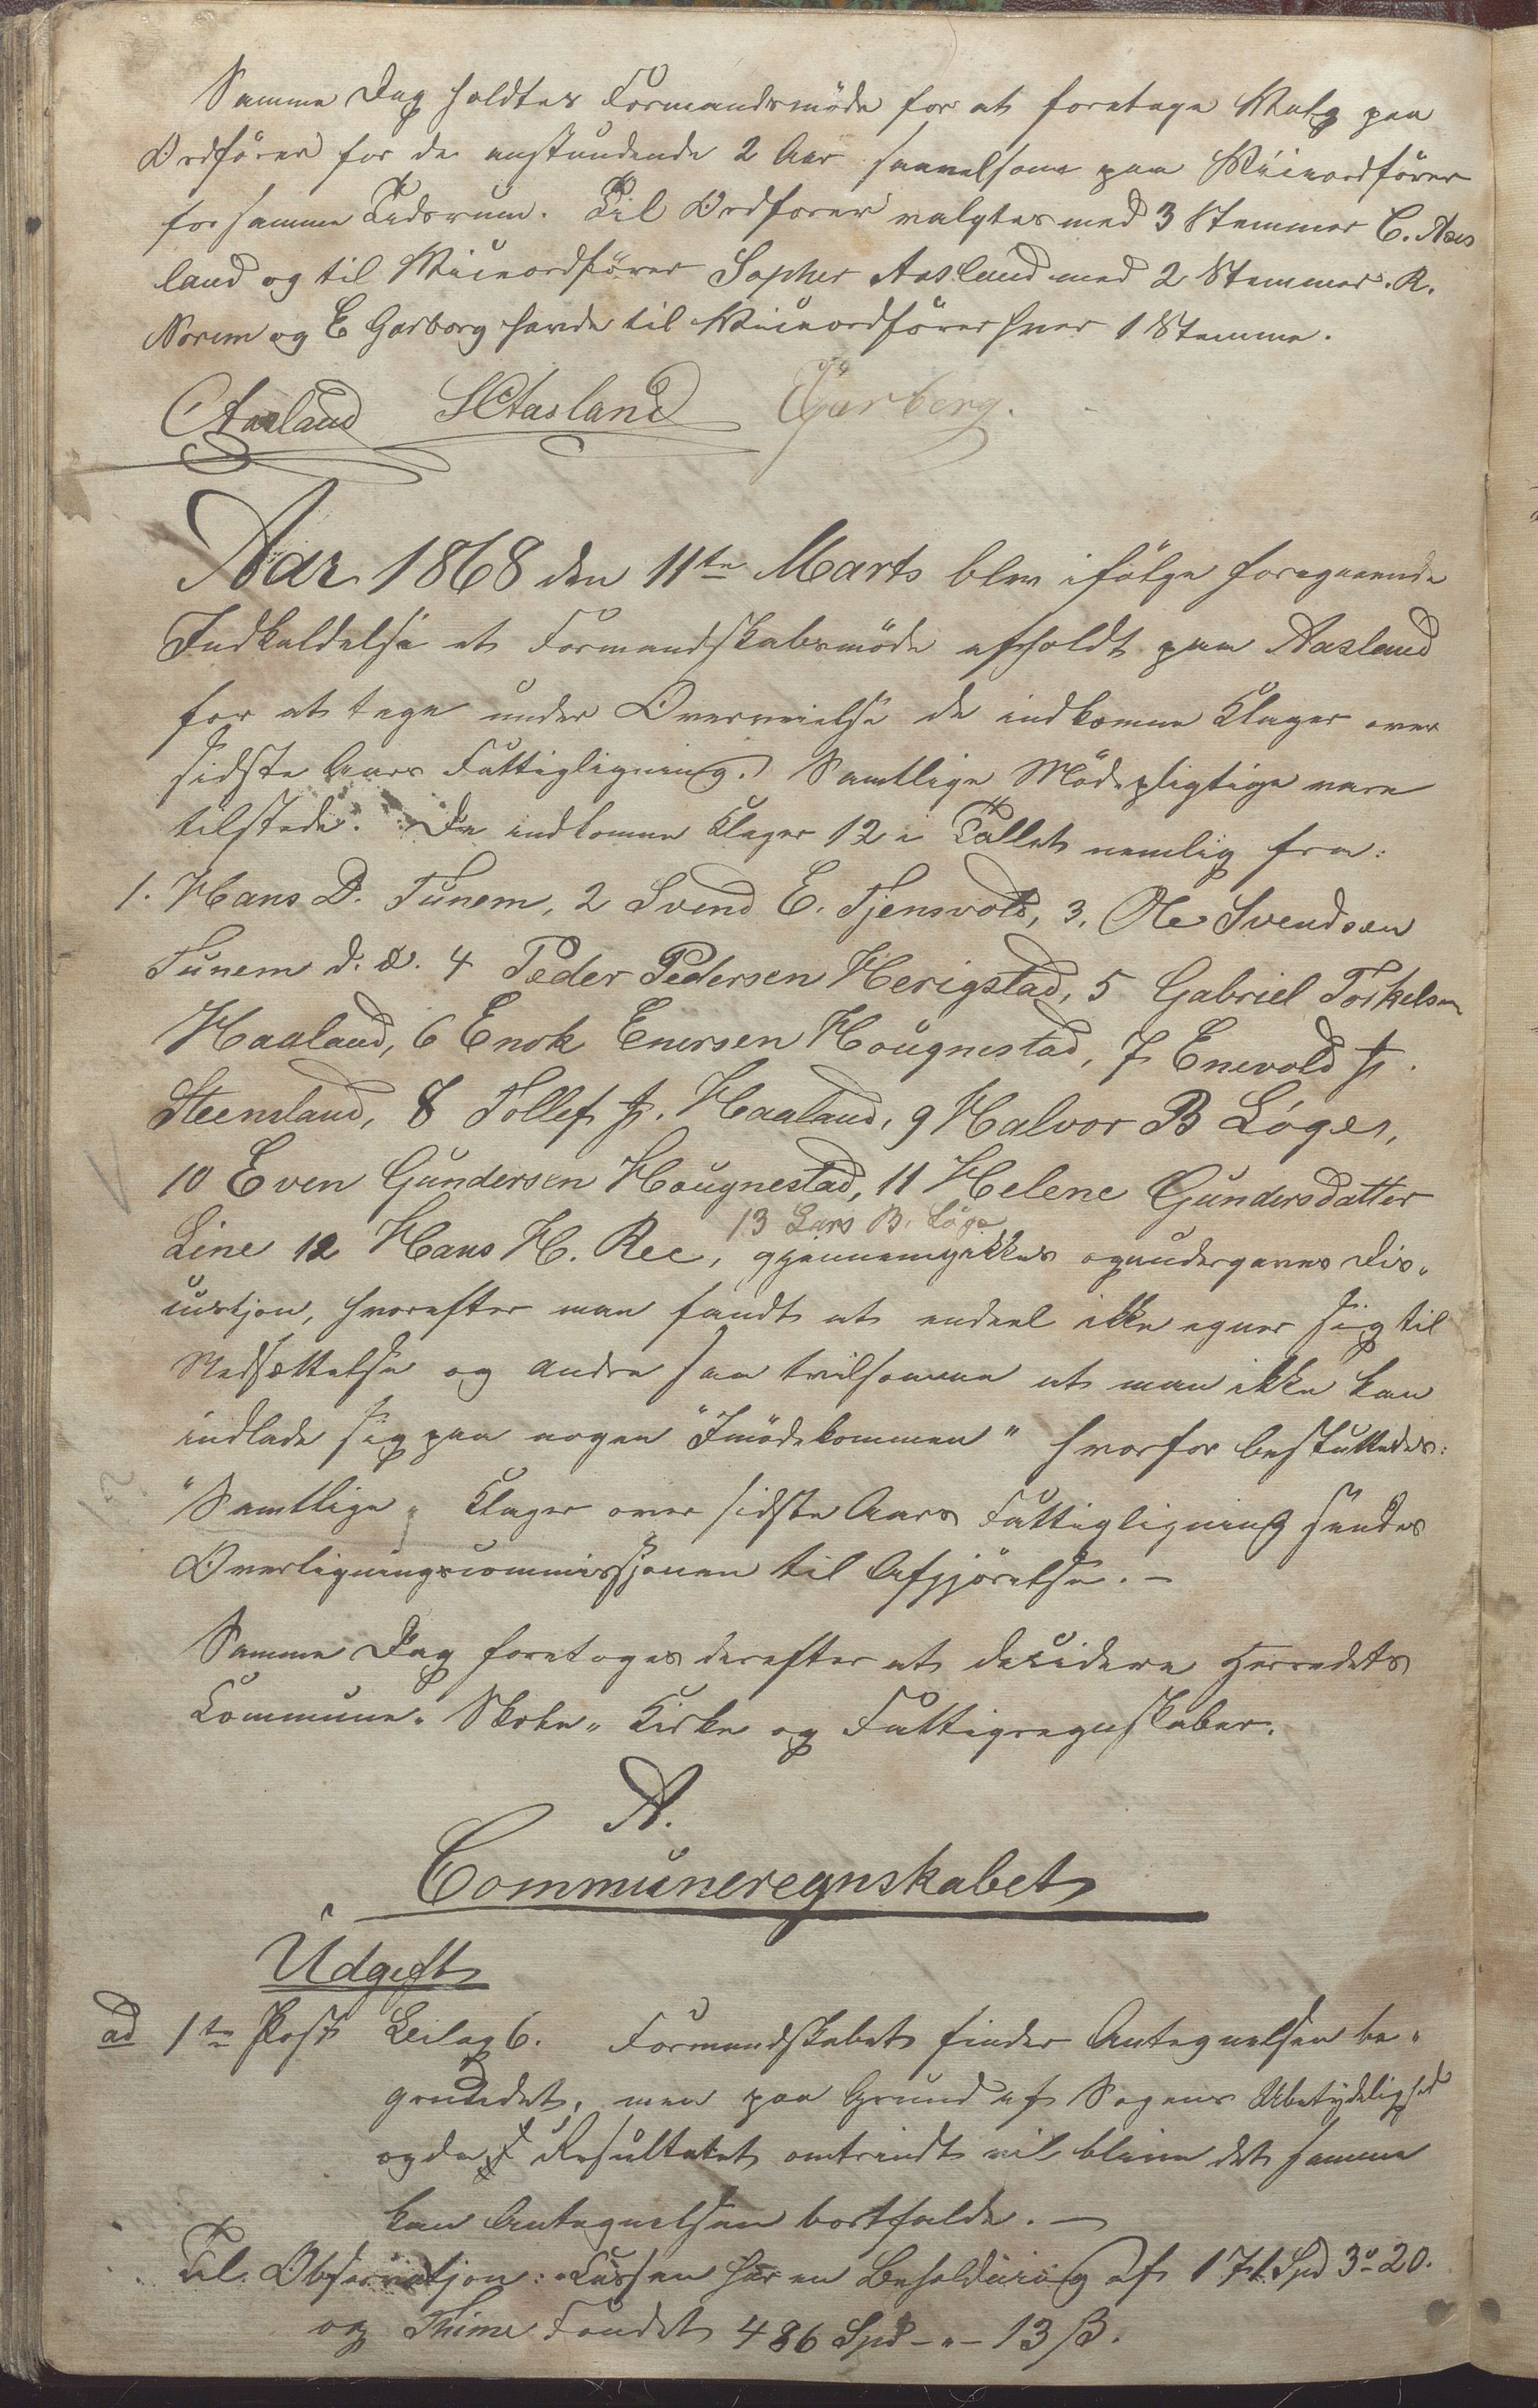 Samme Dag holdtes Formandsmöde for at foretage Valg paa
Ordförer for de anstundende 2 Aar saavelsom paa Viceordförer
for samme Tidsrum. Til Ordforer valgtes med 3 Stemmer C. Aas
land og til Viceordförer Sopher Aasland med 2 Stemmer. R.
Norem og E Garborg havde til Viceordförer hver 1 Stemme.
CAasland SCAasland EGarberg.
Aar 1868 den 11te Marts blev ifölge foregaaende
Indkaldelse et Formandskabsmöde afholdt paa Aasland
for at tage under Overveielse de indkomne Klager over
sidste Aars Fattigligning. Samtlige Mödepligtige vare
tilstede. De indkomne Klager 12 i Tallet nemlig fra:
1. Hans D. Tunem, 2 Svend E. Tjensvold, 3. Ole Svendsen
Tunem d. æ. 4 Peder Pedersen Herigstad, 5 Gabriel Torkelsen
Haaland, 6 Enok Enersen Hougnestad, 7 Enevold T.
Steensland, 8 Tollef T. Haaland, 9 Halvor B Löge,
10 Even Gundersen Hougnestad, 11 Helene Gundersdatter
13 Lars B. Löge
Line 12 Hans H. Ree, gjennemgikkes og undergaves Dis„
cusjon, hvorefter man fandt at endeel ikke egner sig til
Nedsættelse og andre saa tvilsomme at man ikke kan
indlade sig paa nogen "Imödekommen" hvorfor besluttedes:
"Samtlige" Klager over sidste Aars Fattigligning sendes
Overligningscommissjonen til Afgjörelse. –
Samme Dag foretoges derefter at decidere Herredets
Commune„ Skole„ Kirke og Fattigregnskaber.
A.
Communeregnskabet
Udgift
ad 1te Post Bilag 6. Formandskabet finder Antegnelsen be„
grundet, men paa Grund af Sagens Ubetydelighed
og da Resultatet omtrindt vil blive det samme
kan Antegnelsen bortfalde. –
Til Observatjon: Cassen har en Beholdning af 171 Spd 3 o– 20.
og Thime Fondet 486 Spd – „ – 13 ß.